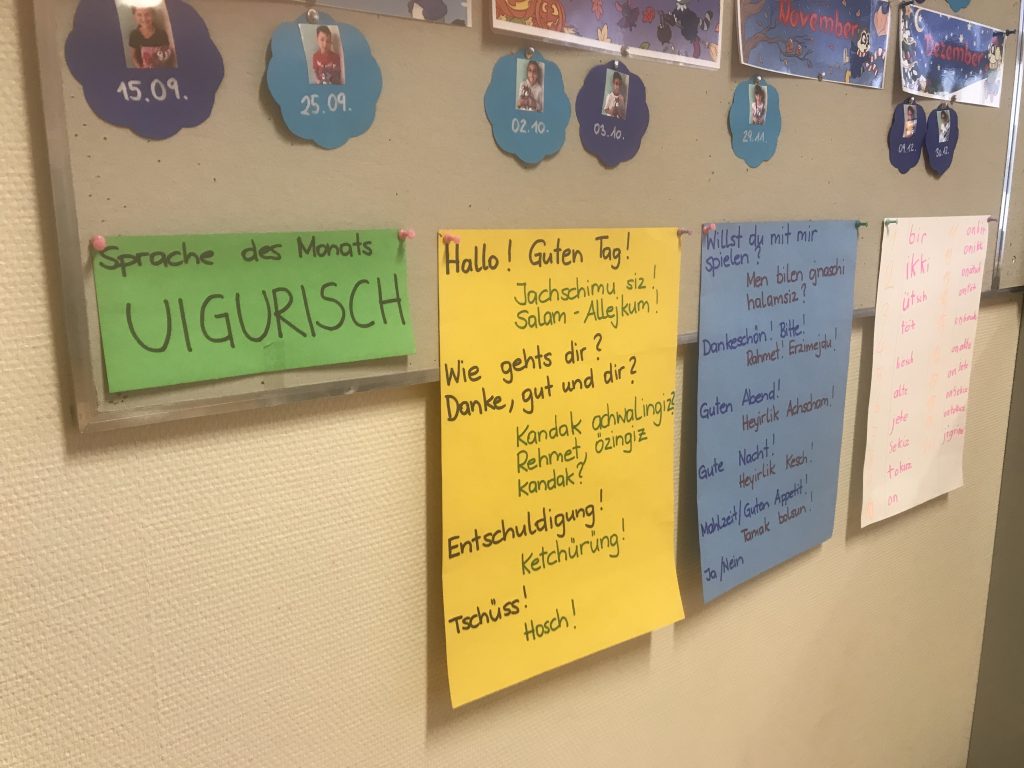 November
Dezember
15.09.
25.09.
02.10.
03.10.
29.11.
09.12.
30.12.
Sprache des Monats
UIGURISCH
Hallo! Guten Tag!
Jachschimu siz!
Salam - Allejkum!
Wie gehts dir?
Danke, gut und dir?
Kandak achwalingiz?
Rehmet, özingiz
kandak?
Entschuldigung!
Ketchürüng!
Tschüss!
Hosch!
Willst du mit mir
spielen?
Men bilen ojnaschi
halamsiz?
Dankeschön! Bitte!
Rahmet! Erzimejdu!
Guten Abend!
Heyirlik Achscham!
Gute Nacht!
Heyirlik Kesch!
Mahlzeit/Guten Appetit!
Tamak bolsun!
Ja/Nein
bir
ikki
ütsch
töt
besch
alte
jete
sekiz
tokuz
on